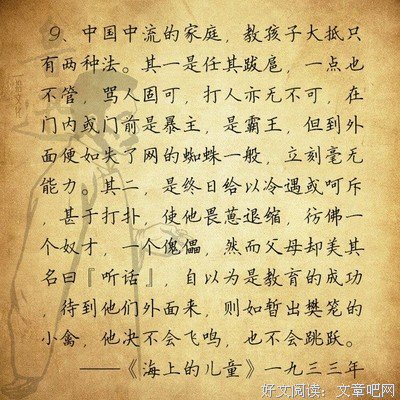 9、中国中流的家庭，教孩子大抵只
有两种法。其一是任其跋扈，一点也
不管，骂人固可，打人亦无不可，在
门内或门前是暴主，是霸王，但到外
面便如失了网的蜘蛛一般，立刻毫无
能力。其二，是终日给以冷遇或呵斥
，甚于打扑，使他畏葸退缩，彷佛一
个奴才，一个傀儡，然而父母却美其
名曰『听话』，自以为是教育的成功
待到他们外面来，则如暂出樊笼的
小禽，他决不会飞鸣，也不会跳跃。
——《海上的儿童》一九三三年
好文阅读：文章吧网